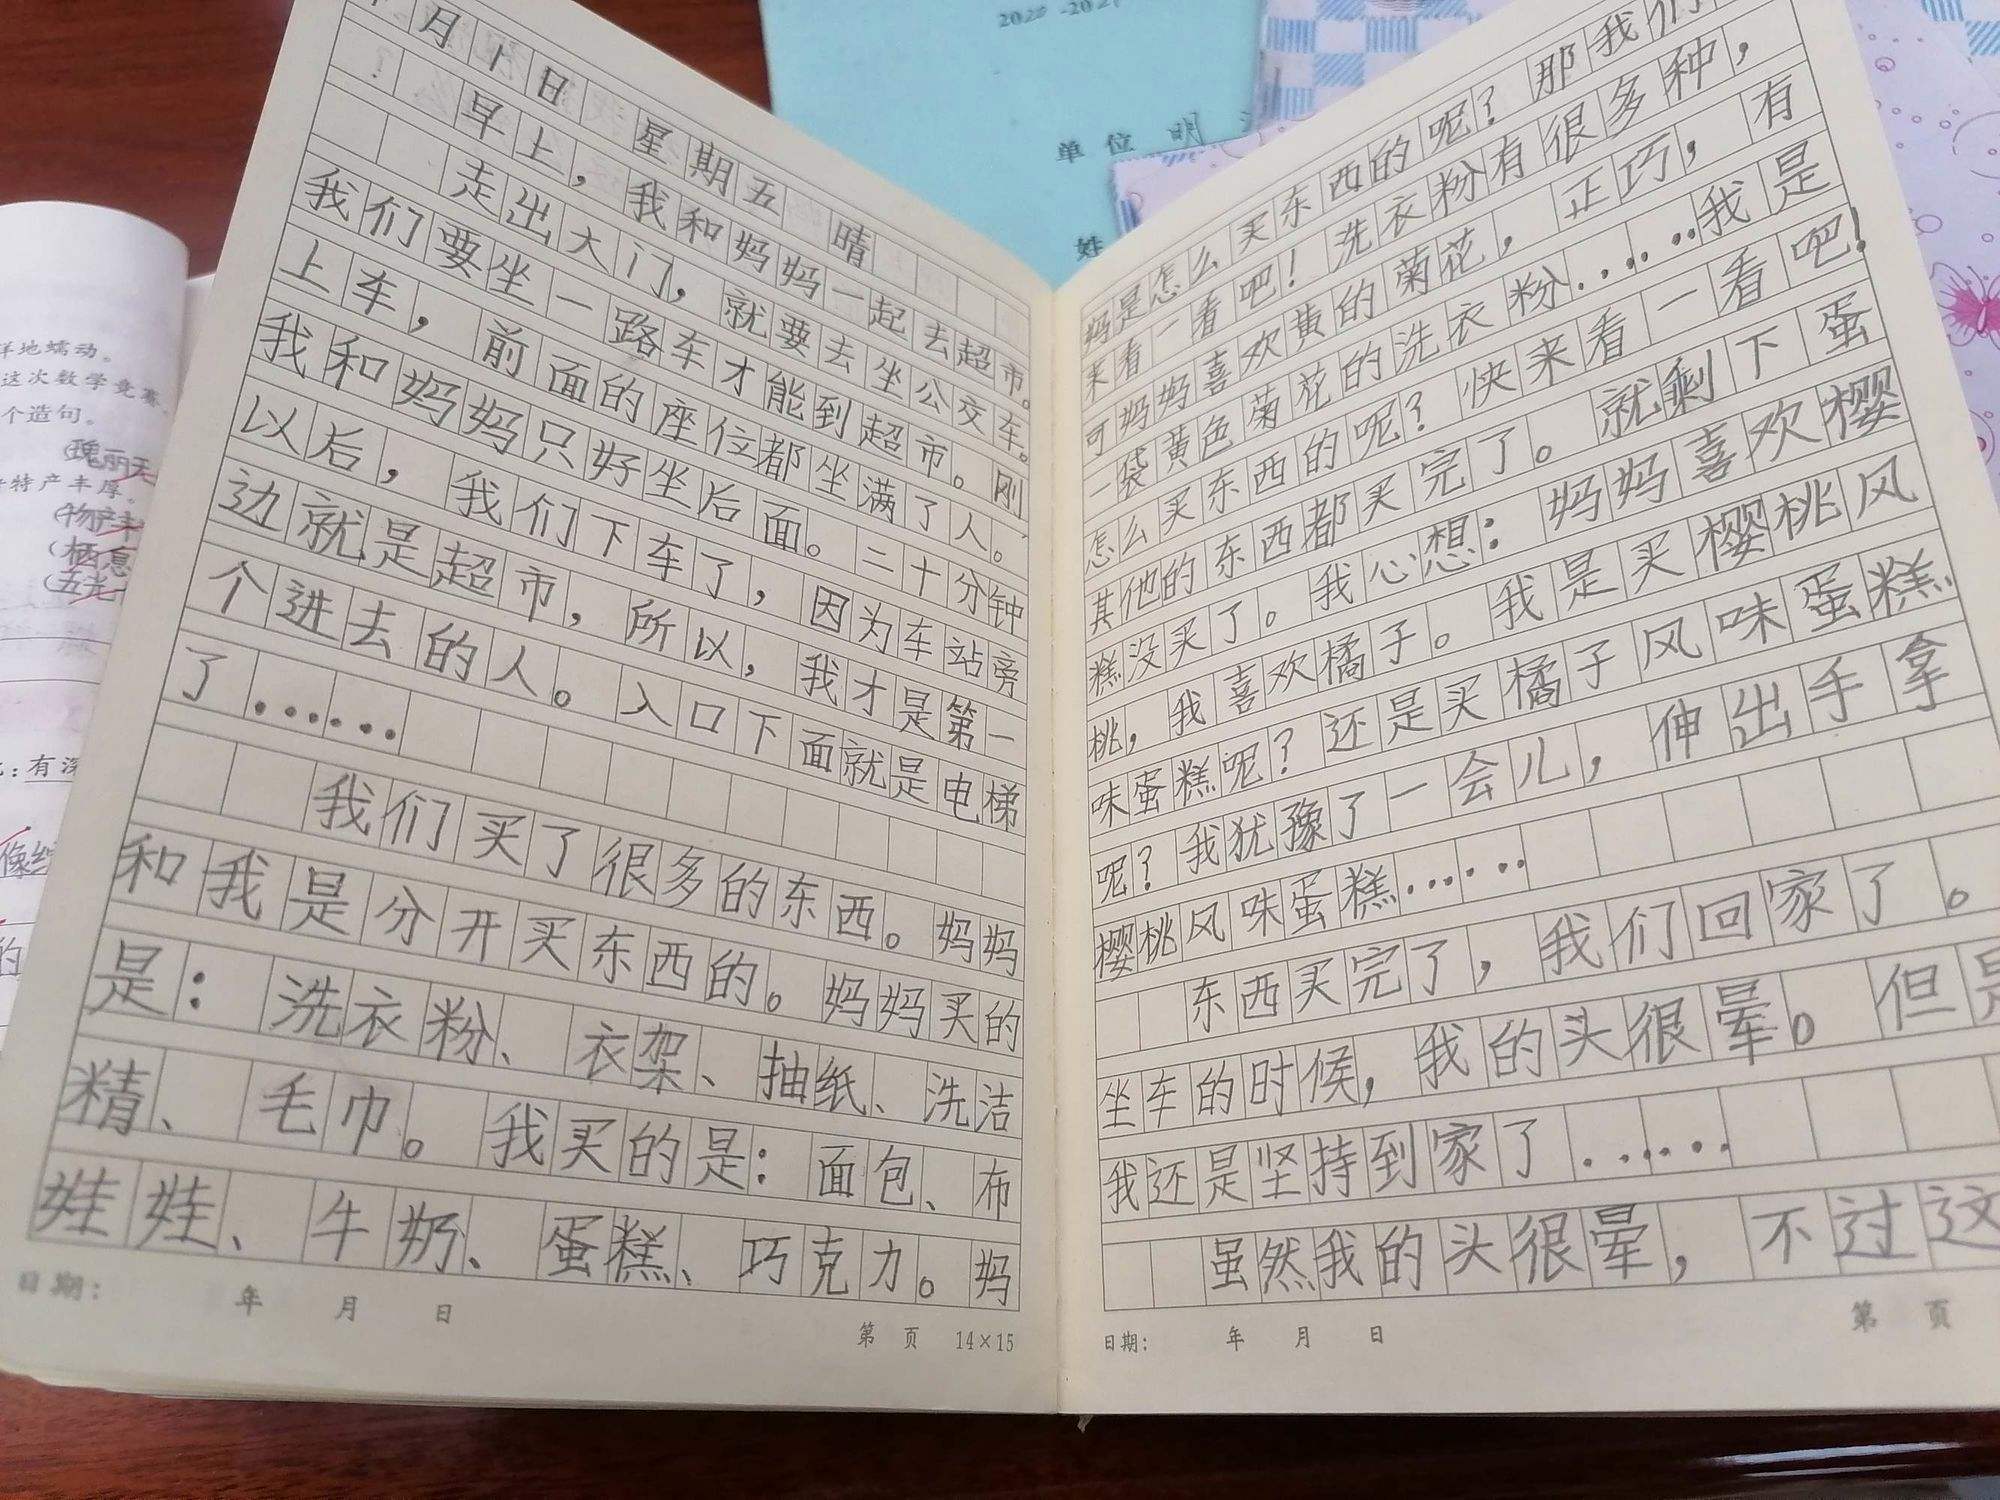 月1日 星期五 晴
早上，我和妈妈一起去超市。
走出大门，就要去坐公交车。
我们要坐一路车才能到超市。刚
上车，前面的座位都坐满了人。
我和妈妈只好坐后面。二十分钟
以后，我们下车了，因为车站旁
边就是超市，所以，我才是第一
个进去的人。入口下面就是电梯
了……
我们买了很多的东西。妈妈
和我是分开买东西的。妈妈买的
是：洗衣粉、衣架、抽纸、洗洁
精、毛巾。我买的是：面包、布
娃娃、牛奶、蛋糕、巧克力。妈
日期： 年 月 日
第 页 14×15
妈是怎么买东西的呢？那我们
来看一看吧！洗衣粉有很多种，
可妈妈喜欢黄的菊花，正巧，有
一袋黄色菊花的洗衣粉……我是
怎么买东西的呢？快来看一看吧！
其他的东西都买完了。就剩下蛋
糕没买了。我心想：妈妈喜欢樱
桃，我喜欢橘子。我是买樱桃风
味蛋糕呢？还是买橘子风味蛋糕
呢？我犹豫了一会儿，伸出手拿
樱桃风味蛋糕……
东西买完了，我们回家了。
坐车的时候，我的头很晕。但是
我还是坚持到家了……
虽然我的头很晕，不过这
日期： 年 月 日
第 页
2020-2021
单位 明
姓
洋地蠕动。
这次数学竞赛
个造句。
(瑰丽无
特产丰厚。
(物产丰
(栖息
(五光
：有深
像
的